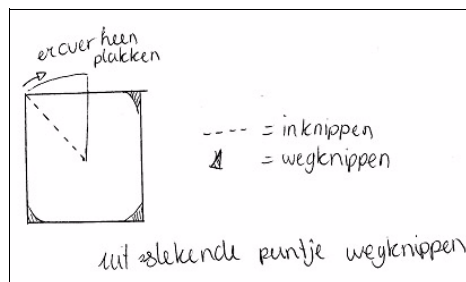 er over heen
plakken
---- = inknippen
= wegknippen
uit stekende puntje wegknippen